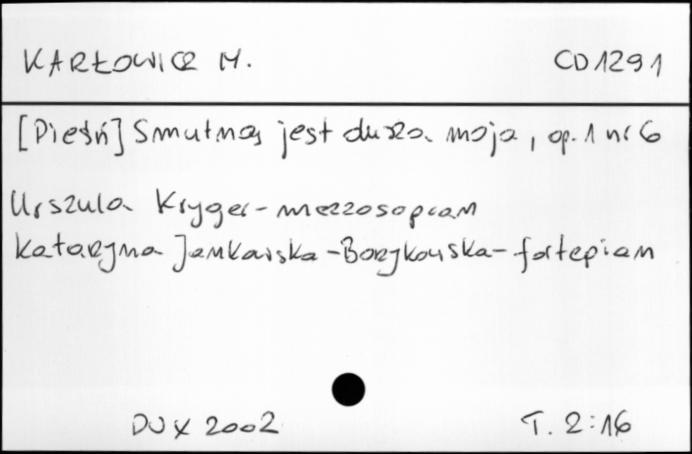 KARŁOWICZ M. CD 1291
[Pieśń] Smutną jest dusza moja, op. 1 nr 6
Urszula Kryger - mezzosopran
Katarzyna Jankowska-Borzykowska - fortepian
DUX 2002 T. 2:16